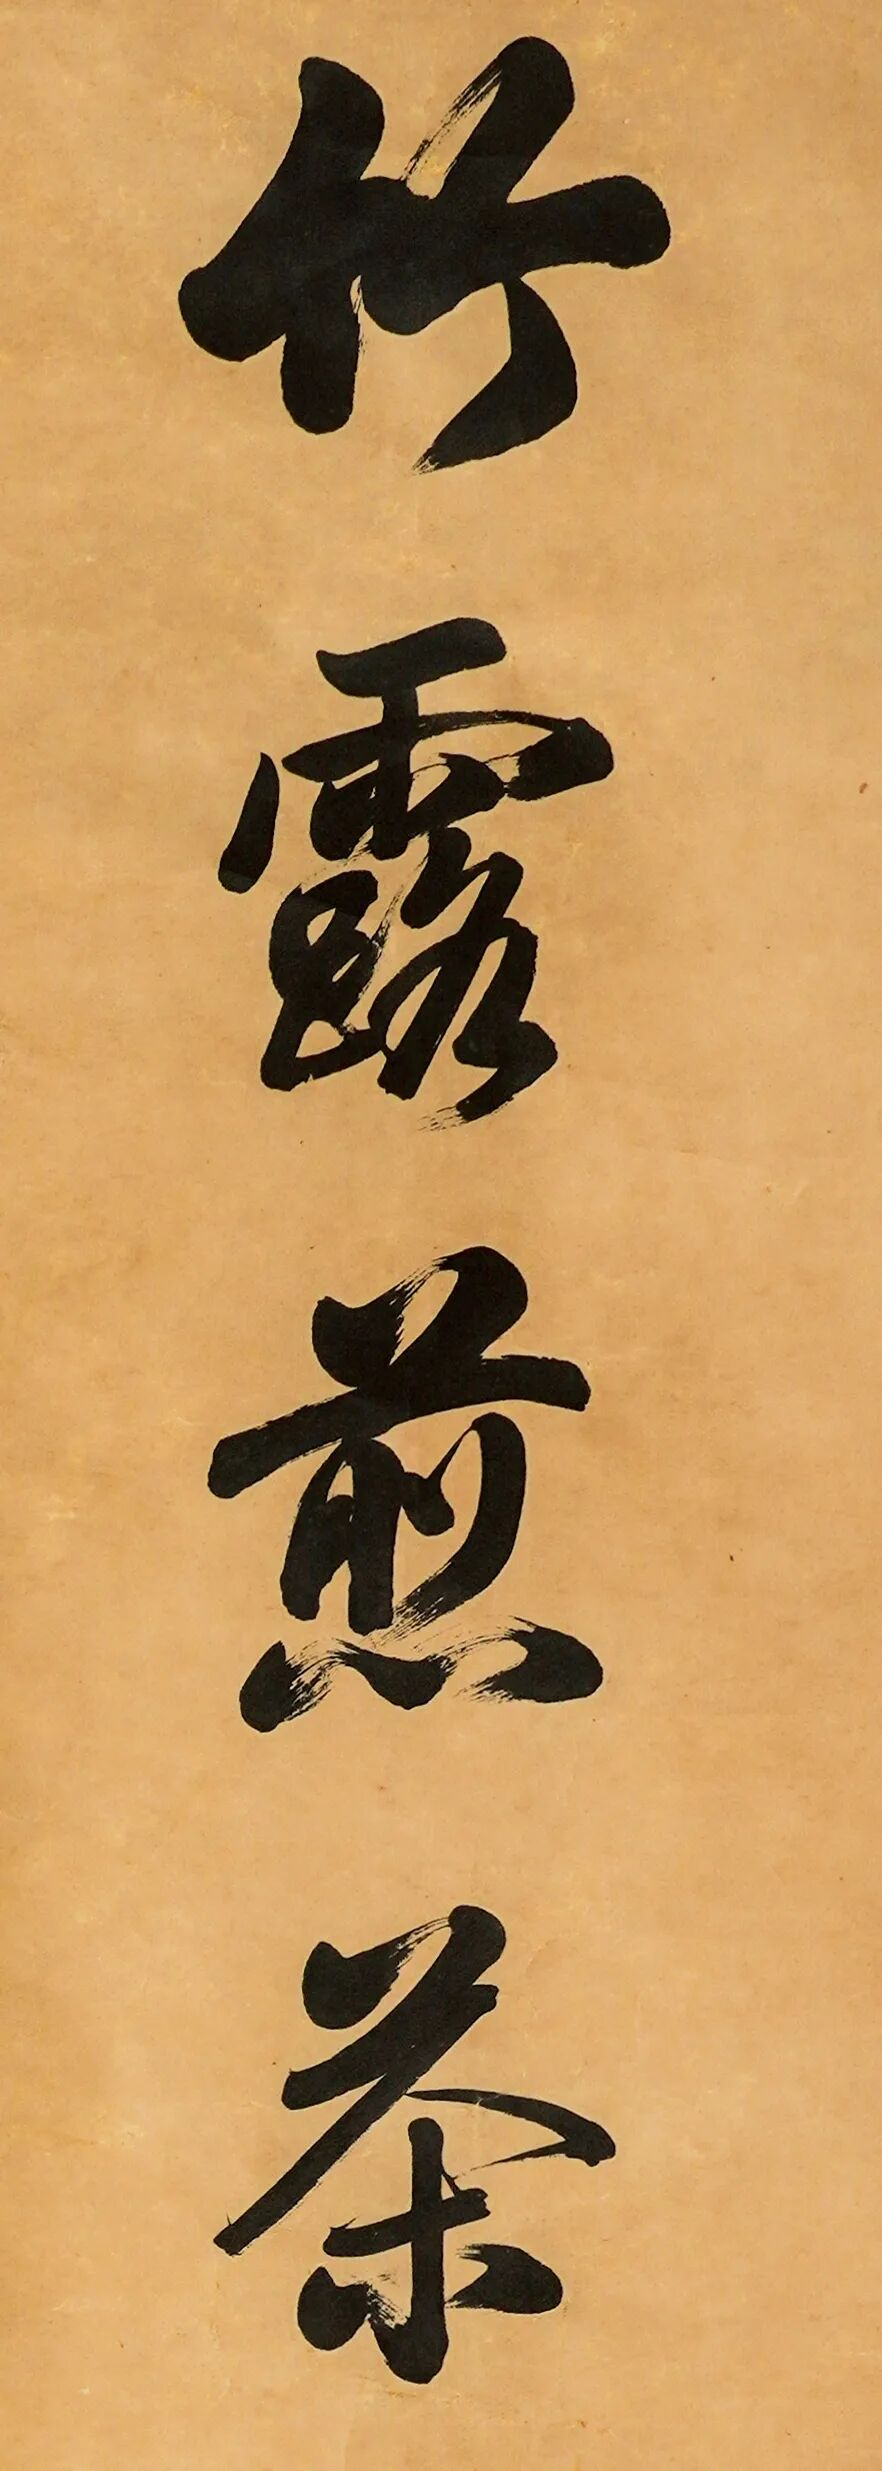 竹露煎茶